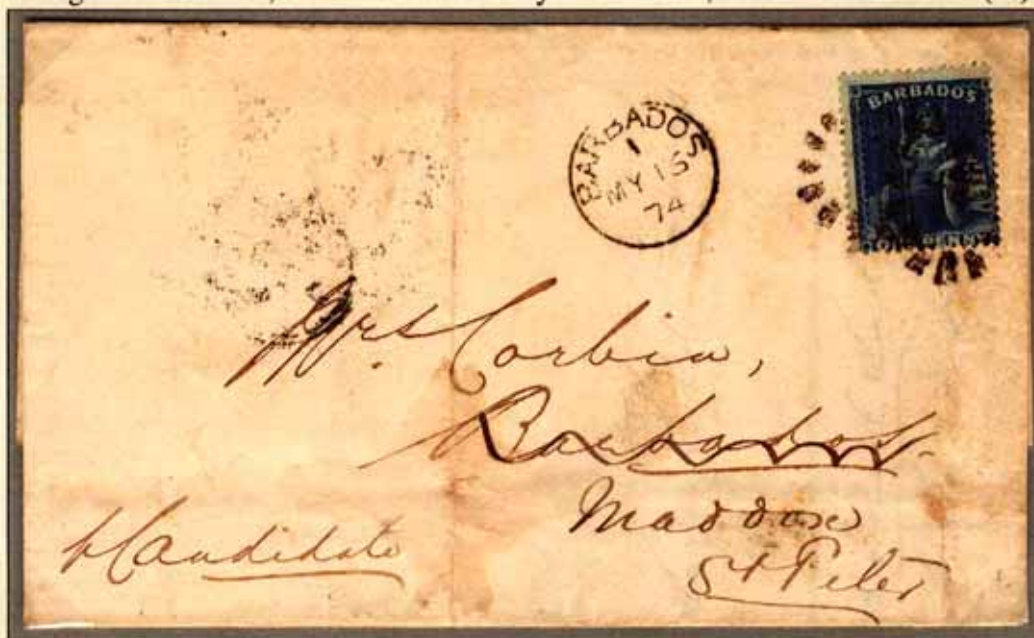 BARBADOS
1
MY 15
74
BARBADOS
ONE PENNY
Mrs. Corbin,
Barbados.
Maddox
St Peter
p Candidate